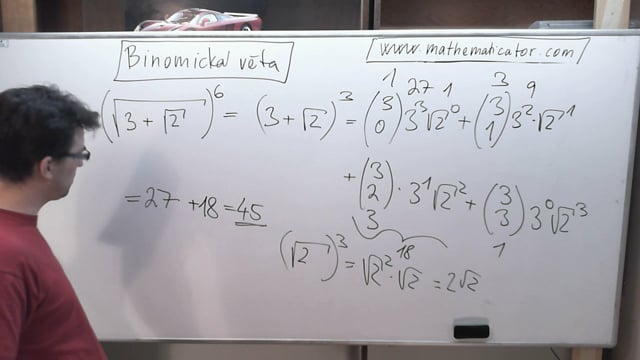 Binomická věta
www.mathematicator.com
(√(3 + √2))⁶ = (3 + √2)³ = (3 0) 3³ √2⁰ + (3 1) 3² · √2¹
1 27 1 3 9
+ (3 2) · 3¹ √2² + (3 3) 3⁰ √2³
3 18 1
= 27 + 18 = 45
(√2)³ = √2² · √2 = 2√2